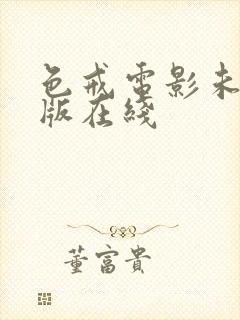 色戒電影未
版在綫
董富貴